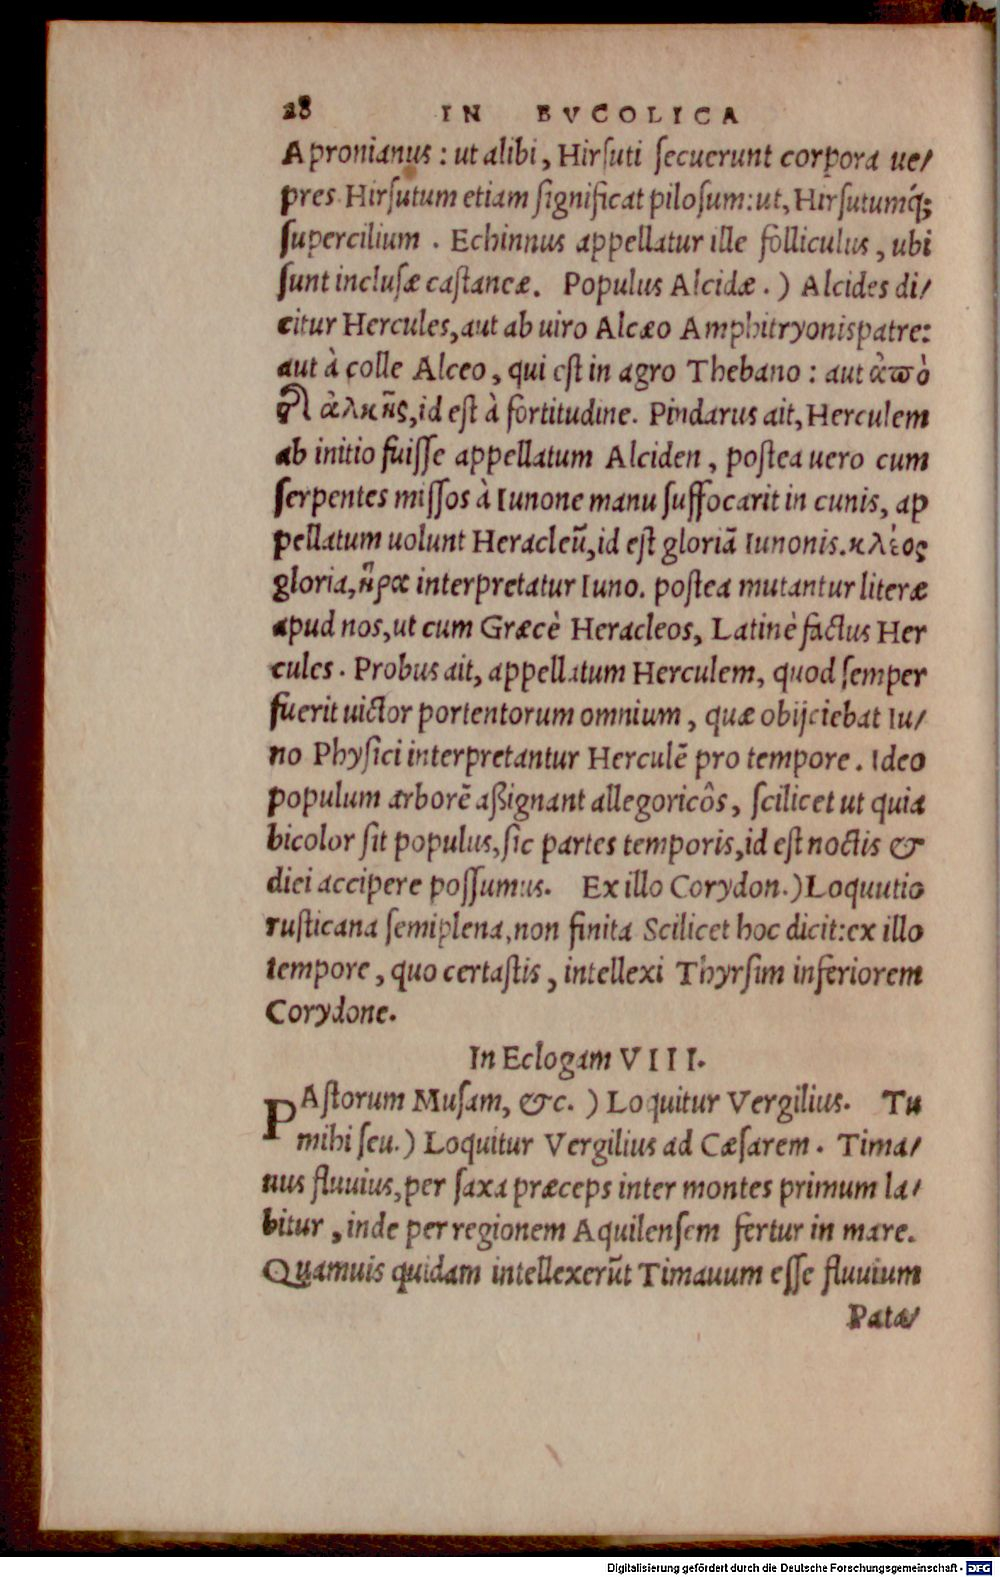 28 IN BVCOLICA
Apronianus: ut alibi, Hirsuti secuerunt corpora ue/
pres Hirsutum etiam significat pilosum: ut, Hirsutumq́;
supercilium. Echinnus appellatur ille folliculus, ubi
sunt inclusæ castaneæ. Populus Alcidæ.) Alcides di/
citur Hercules, aut ab uiro Alcæo Amphitryonis patre:
aut à colle Alceo, qui est in agro Thebano: aut ἀπὸ
τῆς ἀλκῆς, id est à fortitudine. Pindarus ait, Herculem
ab initio fuisse appellatum Alciden, postea uero cum
serpentes missos à Iunone manu suffocarit in cunis, ap
pellatum uolunt Heracleũ, id est gloriã Iunonis. κλέος
gloria, ἥρα interpretatur Iuno. postea mutantur literæ
apud nos, ut cum Græcè Heracleos, Latinè factus Her
cules. Probus ait, appellatum Herculem, quod semper
fuerit uictor portentorum omnium, quæ obijciebat Iu/
no Physici interpretantur Herculẽ pro tempore. Ideo
populum arborẽ aßignant allegoricôs, scilicet ut quia
bicolor sit populus, sic partes temporis, id est noctis &
diei accipere possumus. Ex illo Corydon.) Loquutio
rusticana semiplena, non finita Scilicet hoc dicit: ex illo
tempore, quo certastis, intellexi Thyrsim inferiorem
Corydone.
In Eclogam VIII.
PAstorum Musam, &c.) Loquitur Vergilius. Tu
mihi seu.) Loquitur Vergilius ad Cæsarem. Tima/
uus fluuius, per saxa præceps inter montes primum la/
bitur, inde per regionem Aquilensem fertur in mare.
Quamuis quidam intellexerũt Timauum esse fluuium
Pata/
Digitalisierung gefördert durch die Deutsche Forschungsgemeinschaft - DFG